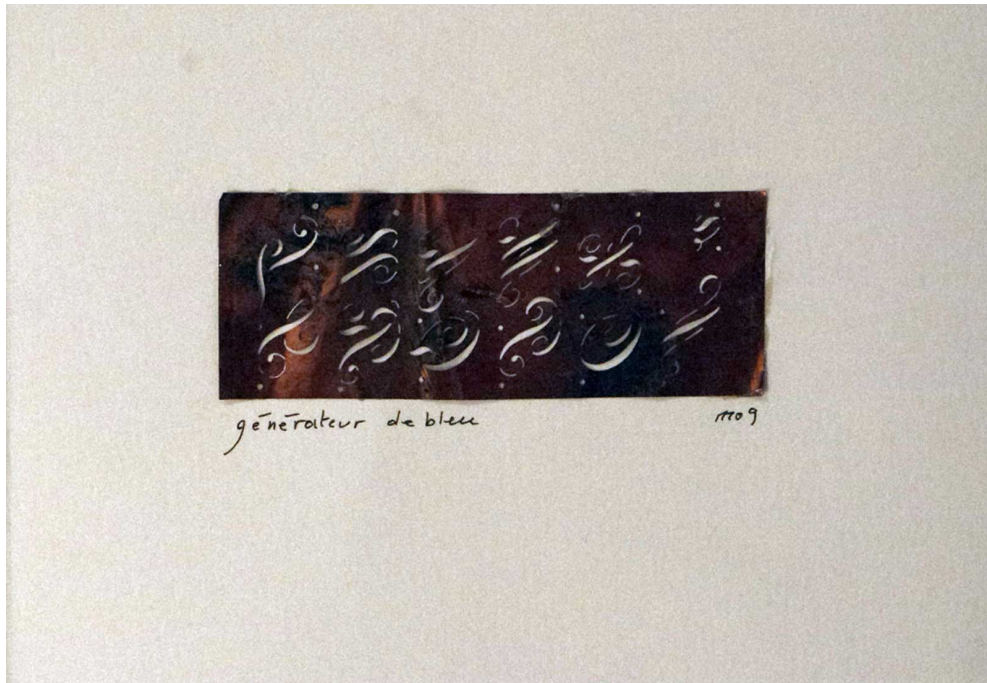 générateur de bleu
m09